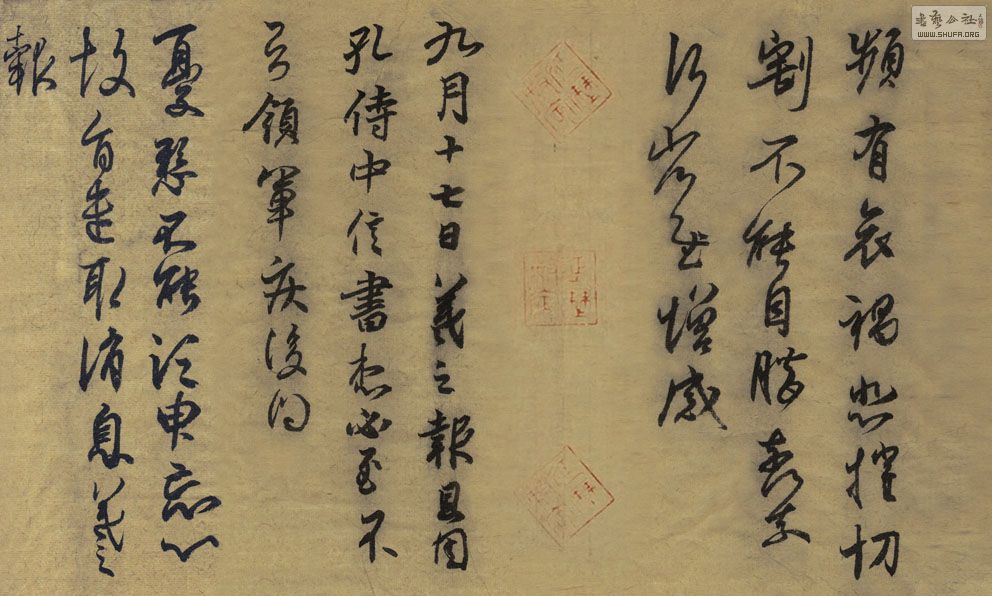 頻有哀禍悲摧切
割不能自勝奈
何省慰增感
九月十七日羲之報且因
孔侍中信書想必至不
知領軍疾後問
憂懸不能須臾忘心
故旨遣取消息羲之
報
書藝公社
WWW.SHUFA.ORG